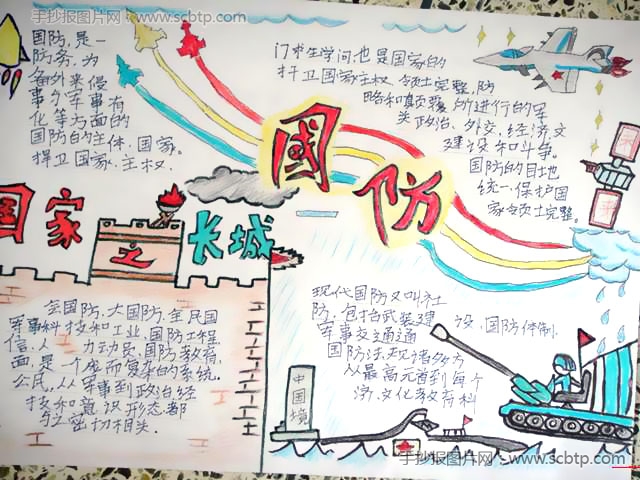 手抄报图片网 - www.scbtp.com
国防,是一
防务,为
备外来侵
事尔军事有
化等方面的
国防的主体,国家。
捍卫国家、主权.
门求生学问也是国家的
捍卫国家主权、领土完整,防
略和颠覆,所进行的军
类政治、外交,经济,文
建设和斗争。
国防的目地
统一、保护国
家领土完整。
國
防
国家之长城
全国防、大国防、全民国
军事科技和工业,国防工程
信.人、力动员,国防教育,
面,是一个庞而复杂的系统。
公民,从军事到政治经
技和意识形态都
密切相关.
现代国防又叫社
防,包括武装建设、国防体制、
军事交通通
国防法规诸多方
从最高元首到每个
济、文化教育科
中国境
手抄报图片网 - www.scbtp.com